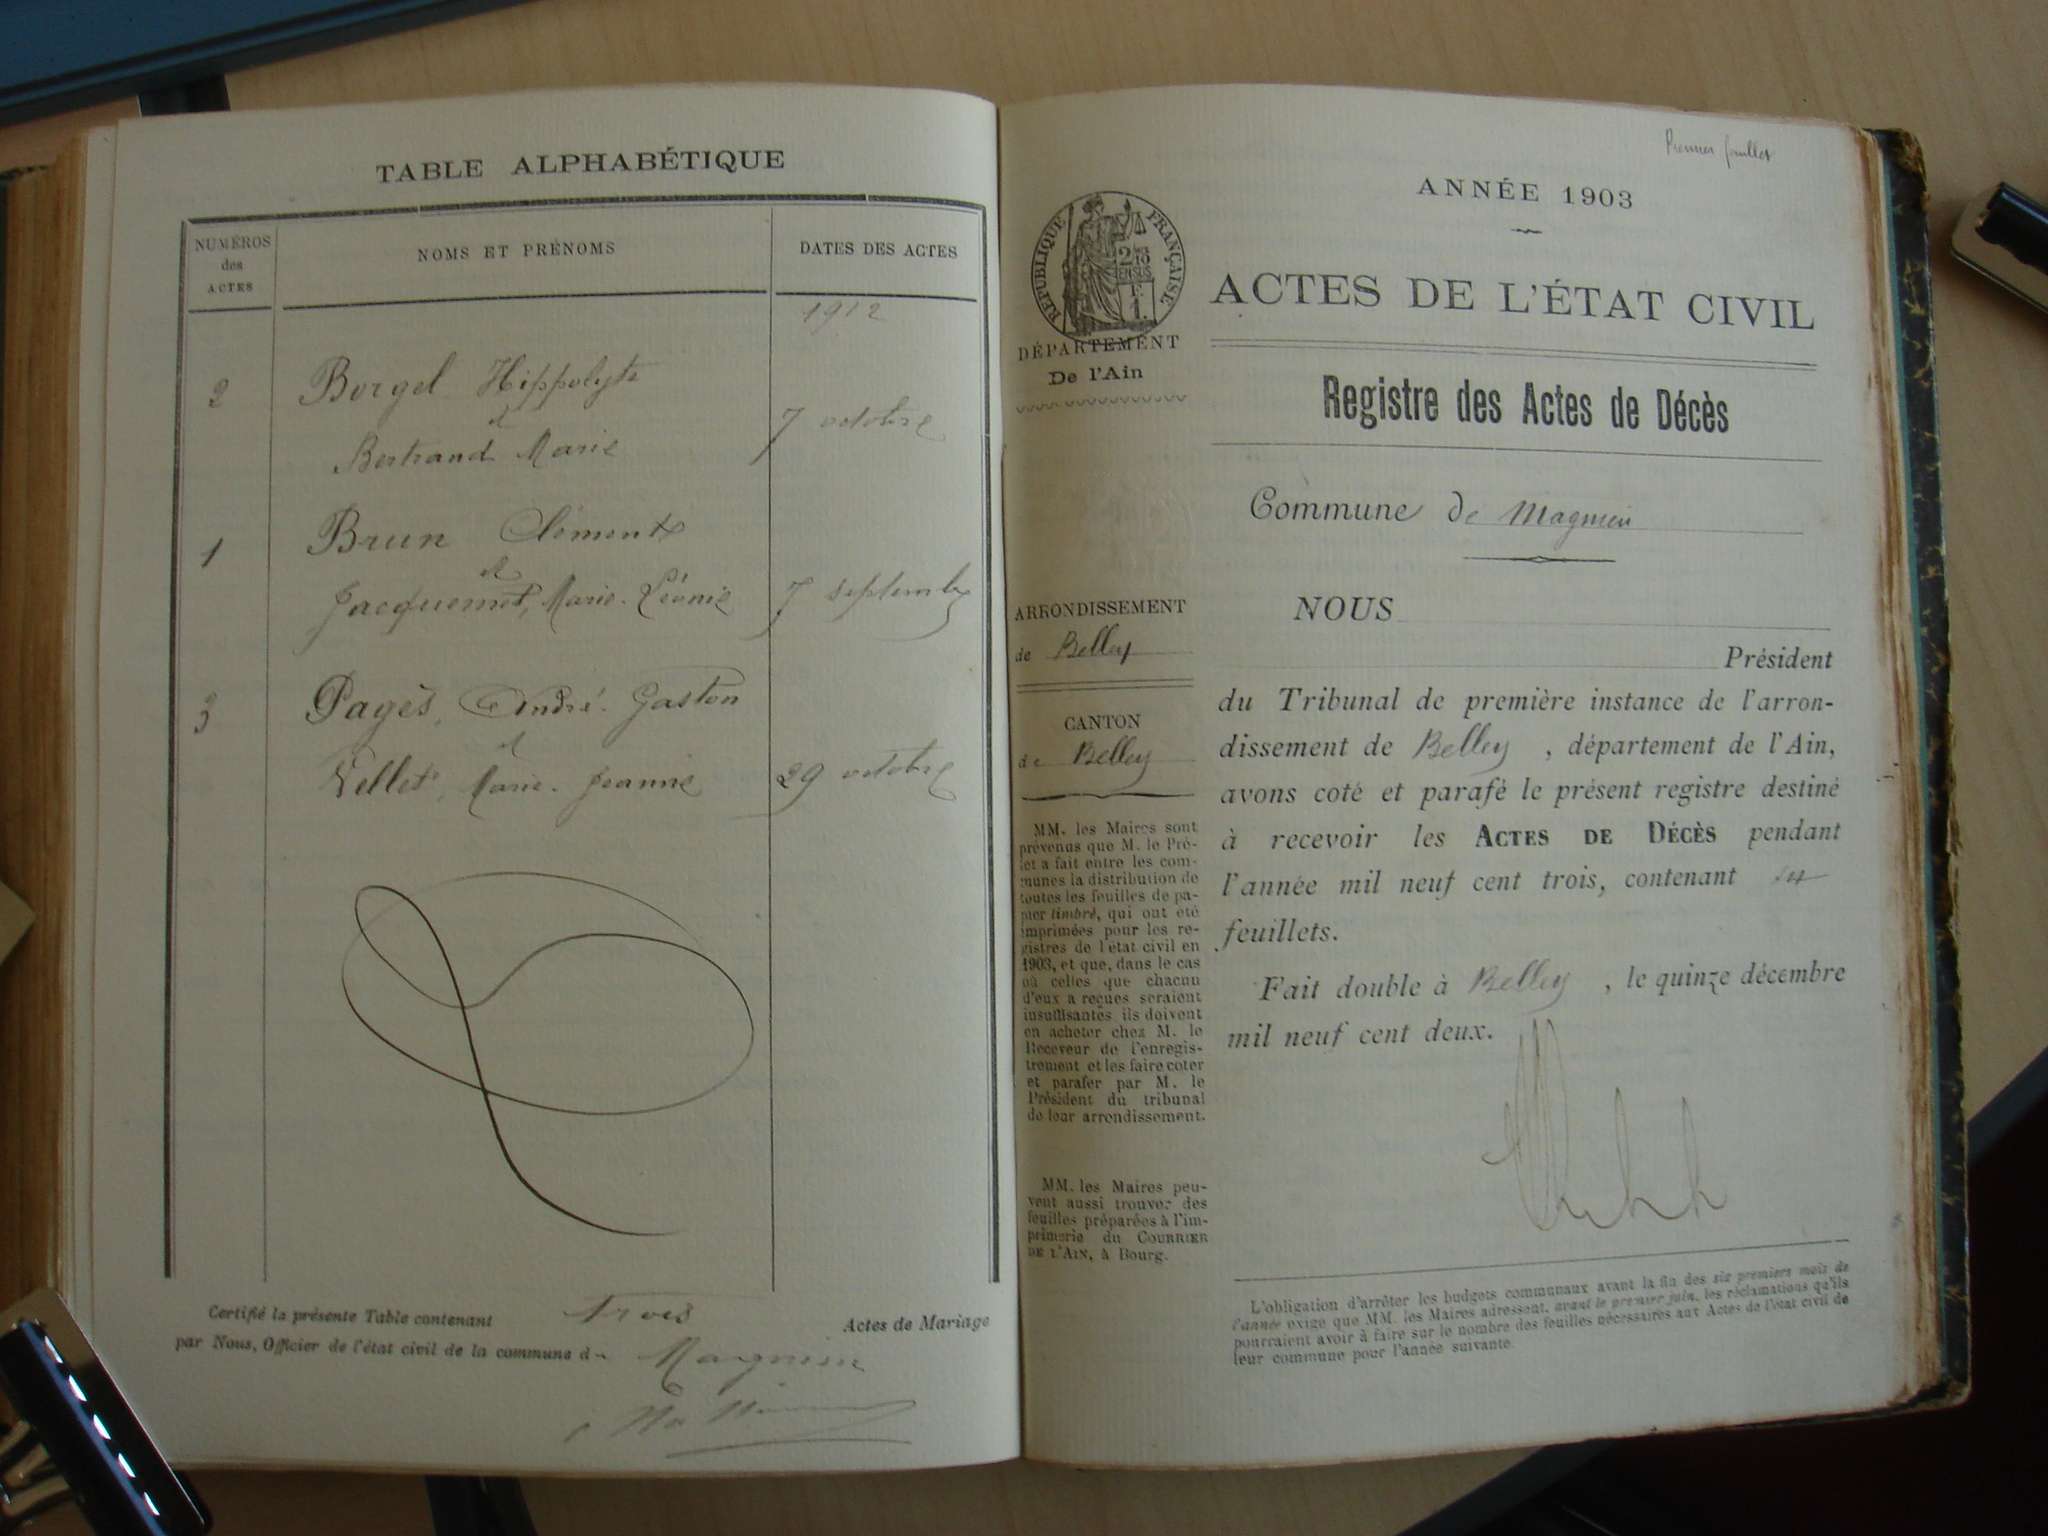 TABLE ALPHABÉTIQUE
NUMÉROS
des
ACTES
NOMS ET PRÉNOMS
DATES DES ACTES
1912
2
Borgel Hippolyte
et
Bertrand Marie
7 octobre
1
Brun Clément
et
Jacquemet, Marie-Léonie
7 septembre
3
Pagès, André-Gaston
et
Vellet, Marie-Jeanne
29 octobre
Certifié la présente Table contenant Trois Actes de Mariage
par Nous, Officier de l'état civil de la commune de Magnieu
Premier feuillet
ANNÉE 1903
RÉPUBLIQUE FRANÇAISE
ACTES DE L'ÉTAT CIVIL
DÉPARTEMENT
De l'Ain
Registre des Actes de Décès
Commune de Magnieu
ARRONDISSEMENT
de Belley
CANTON
de Belley
MM. les Maires sont
prévenus que M. le Pré-
fet a fait entre les com-
munes la distribution de
toutes les feuilles de pa-
pier timbré, qui ont été
imprimées pour les re-
gistres de l'état civil en
1903, et que, dans le cas
où celles que chacun
d'eux a reçues seraient
insuffisantes ils doivent
en acheter chez M. le
Receveur de l'enregis-
trement et les faire coter
et parafer par M. le
Président du tribunal
de leur arrondissement.
MM. les Maires peu-
vent aussi trouver des
feuilles préparées à l'im-
primerie du COURRIER
DE L'AIN, à Bourg.
NOUS
Président
du Tribunal de première instance de l'arron-
dissement de Belley, département de l'Ain,
avons coté et parafé le présent registre destiné
à recevoir les ACTES DE DÉCÈS pendant
l'année mil neuf cent trois, contenant
feuillets.
Fait double à Belley, le quinze décembre
mil neuf cent deux.
L'obligation d'arrêter les budgets communaux avant la fin des six premiers mois de
l'année exige que MM. les Maires adressent, avant le premier juin, les réclamations qu'ils
pourraient avoir à faire sur le nombre des feuilles nécessaires aux Actes de l'état civil de
leur commune pour l'année suivante.